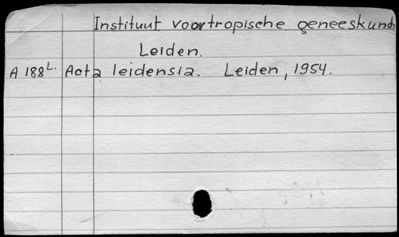 Instituut voor tropische geneeskund
Leiden.
A 188 L. Acta leidensia. Leiden, 1954.